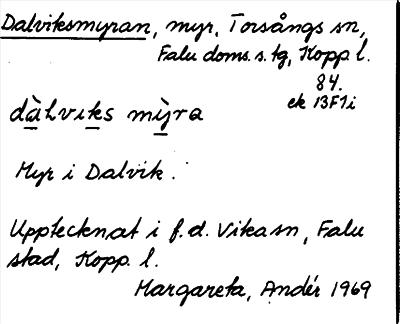 Dalviksmyran, myr, Torsångs sn,
Falu doms. s. tg, Kopp. l.
84.
ek 13F1i
dàlviks mỳra
Myr i Dalvik.
Upptecknat i f.d. Vika sn, Falu
stad, Kopp. l.
Margareta, Andér 1969